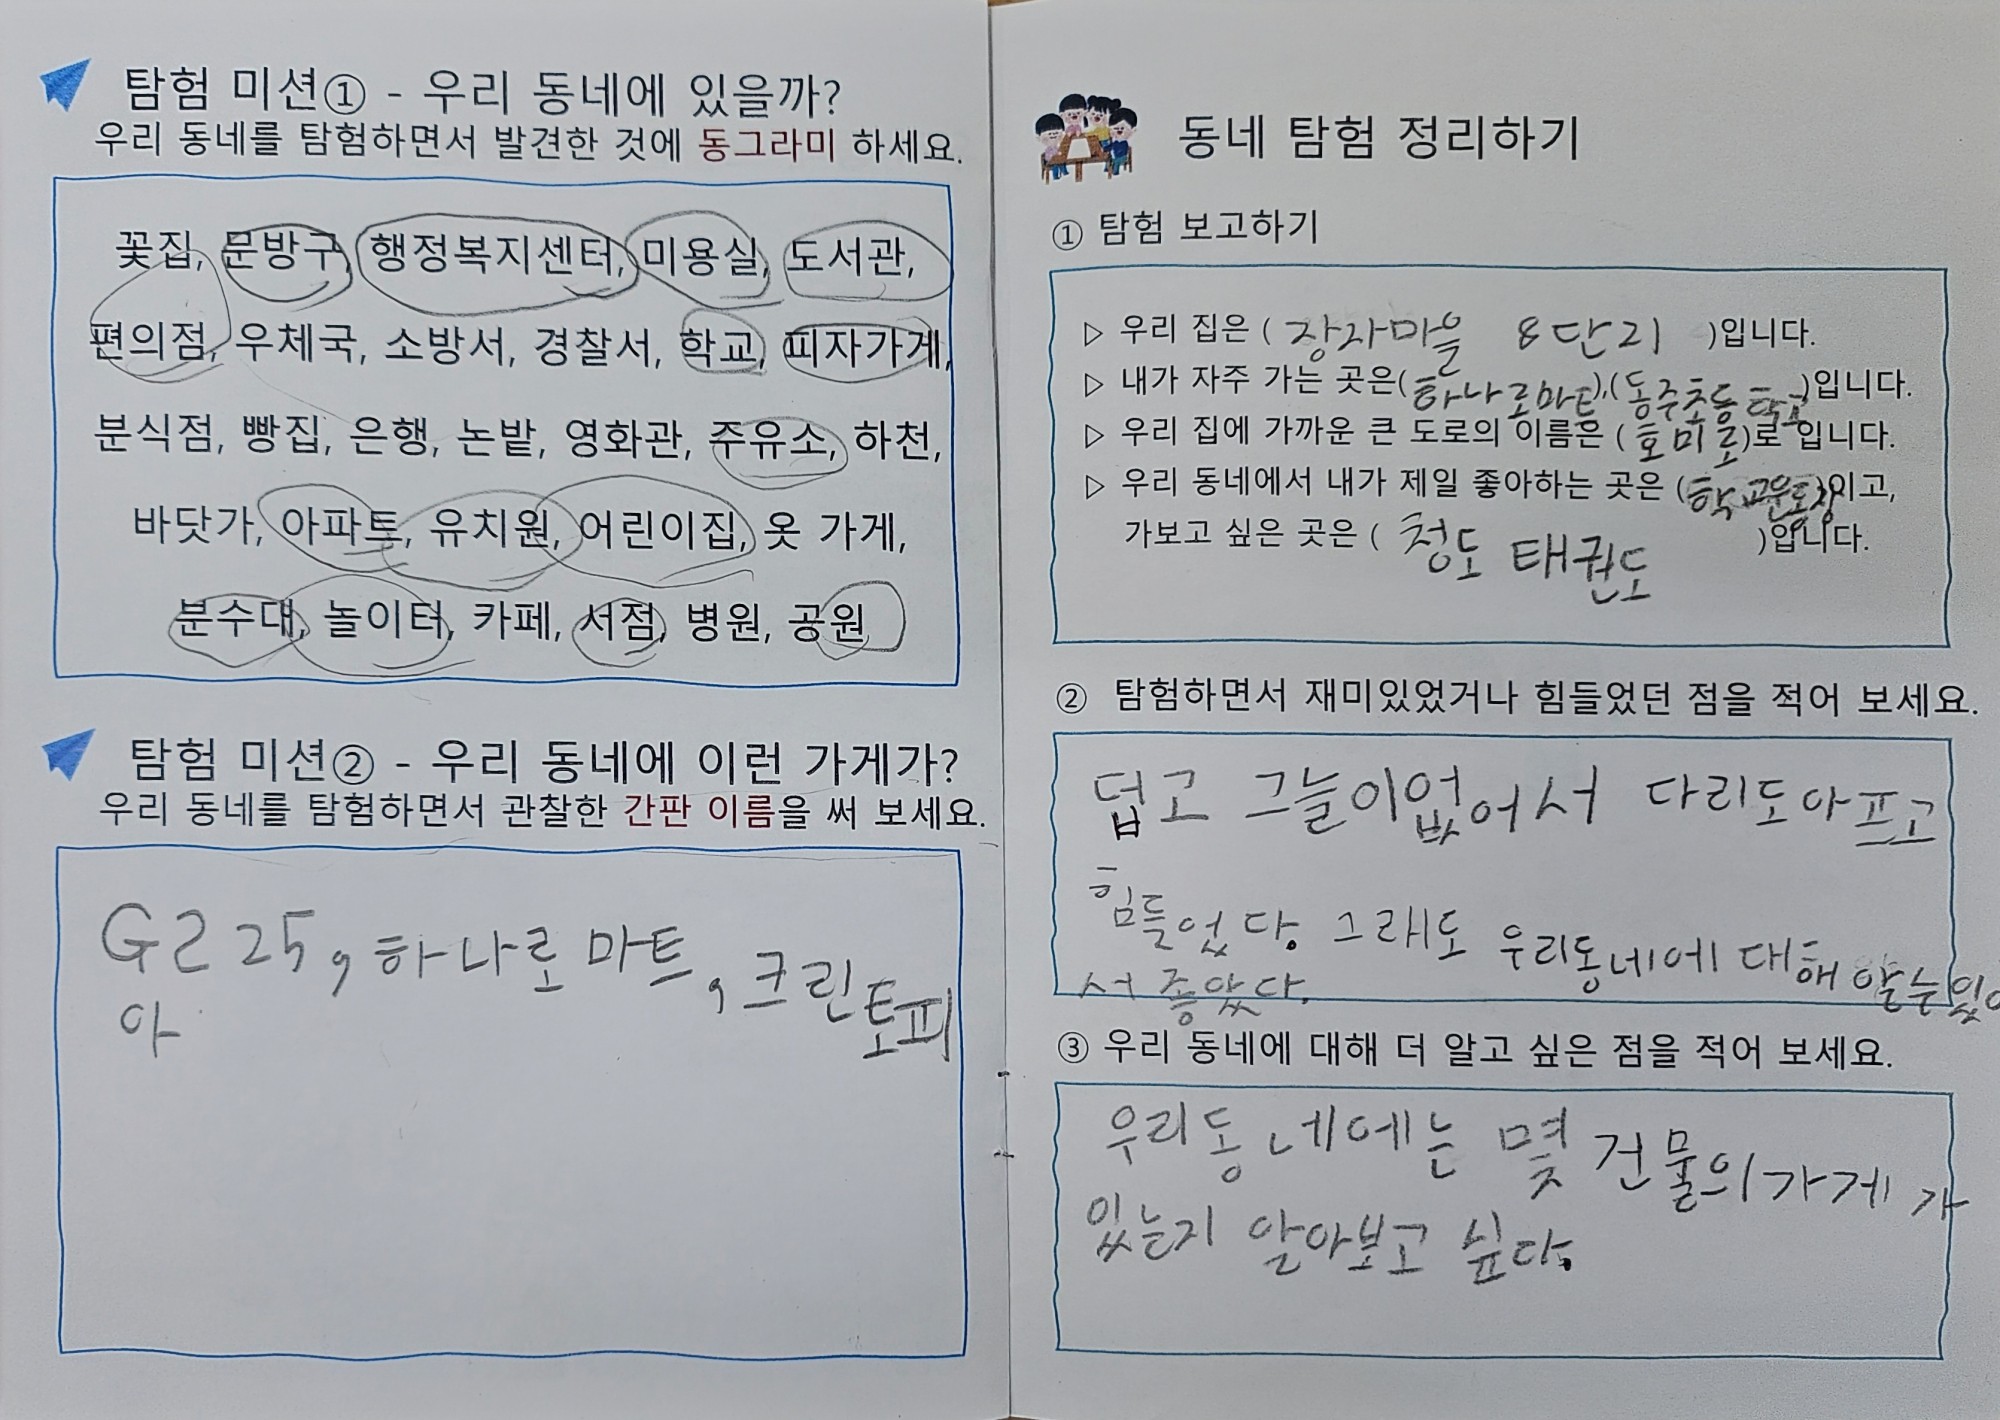 탐험 미션① - 우리 동네에 있을까?
우리 동네를 탐험하면서 발견한 것에 동그라미 하세요.
꽃집, 문방구, 행정복지센터, 미용실, 도서관,
편의점, 우체국, 소방서, 경찰서, 학교, 피자가게,
분식점, 빵집, 은행, 논밭, 영화관, 주유소, 하천,
바닷가, 아파트, 유치원, 어린이집, 옷 가게,
분수대, 놀이터, 카페, 서점, 병원, 공원
탐험 미션② - 우리 동네에 이런 가게가?
우리 동네를 탐험하면서 관찰한 간판 이름을 써 보세요.
G2 25, 하나로 마트, 크린토피
아
동네 탐험 정리하기
① 탐험 보고하기
▷ 우리 집은 ( 장자마을 8단리 )입니다.
▷ 내가 자주 가는 곳은(하나로마트),(동주초등학교)입니다.
▷ 우리 집에 가까운 큰 도로의 이름은 (호미로)로 입니다.
▷ 우리 동네에서 내가 제일 좋아하는 곳은 (학교운동장)이고,
가보고 싶은 곳은 ( 청도 태권도 )입니다.
② 탐험하면서 재미있었거나 힘들었던 점을 적어 보세요.
덥고 그늘이없어서 다리도아프고
힘들었다. 그래도 우리동네에 대해 알수있어
서 좋았다.
③ 우리 동네에 대해 더 알고 싶은 점을 적어 보세요.
우리동네에는 몇 건물의가게 가
있는지 알아보고 싶다.